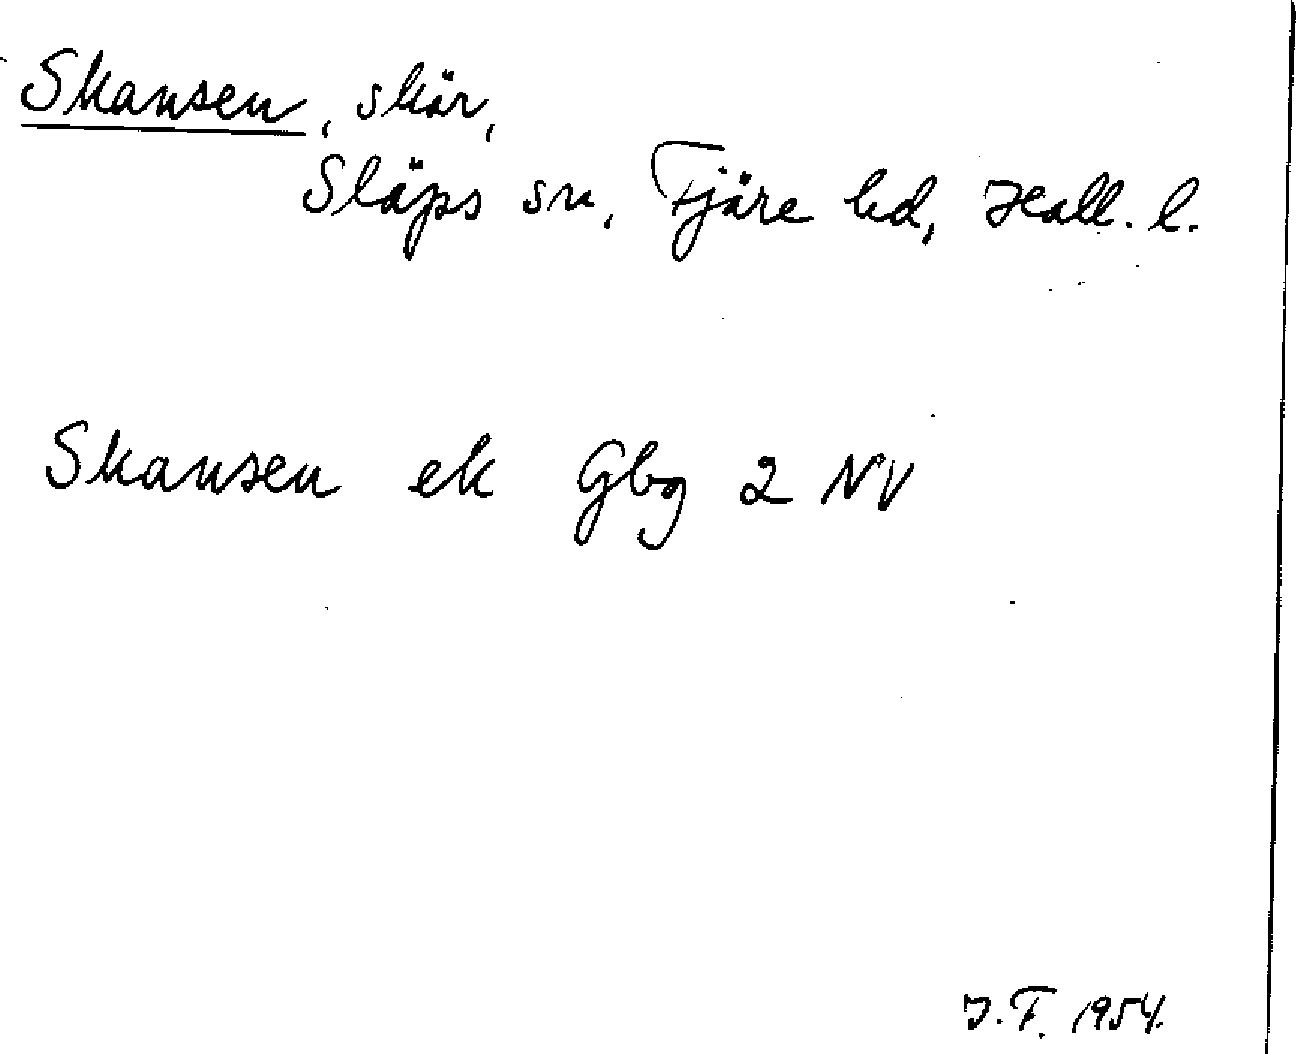 Skansen, skär,
Släps sn, Fjäre hd, Hall. l.
Skansen ek Gbg 2 NV
J.F. 1954.